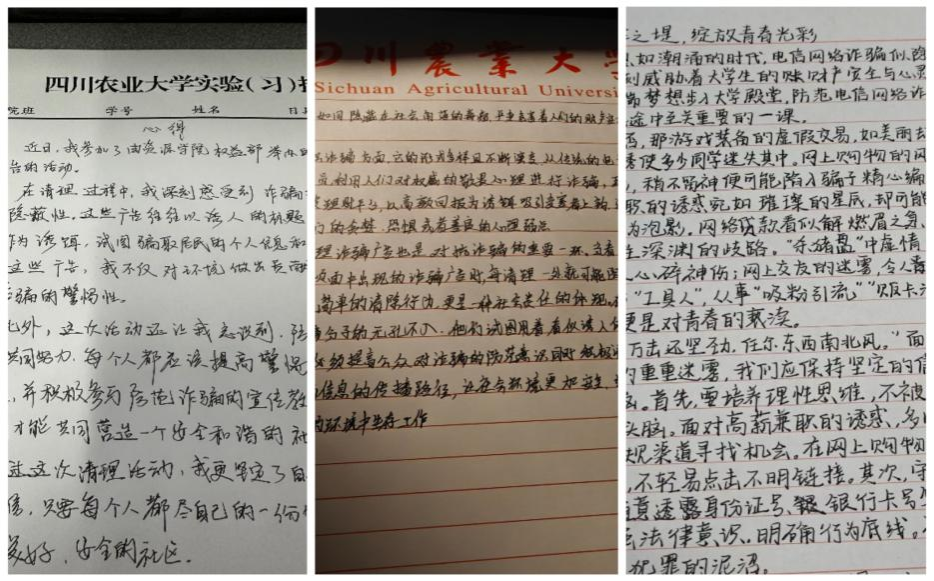 四川农业大学实验(习)报
院班 学号 姓名 日
心得
近日,我参加了由资源学院权益部举办的
告的活动.
在清理过程中,我深刻感受到诈骗
隐蔽性.这些广告往往以诱人的标题
作为诱饵,试图骗取居民的个人信息和
这些广告,我不仅对环境做出贡献
骗的警惕性.
此外,这次活动还让我意识到,防
共同努力.每个人都应该提高警惕
,并积极参与防电信诈骗的宣传教
才能共同营造一个安全和谐的社
过这次清理活动,我更坚定了自
信,只要每个人都尽自己的一份
美好、安全的社区.
四川農業大學
Sichuan Agricultural Universi
如同隐藏在社会角落的毒瘤,严重危害着人们的财产
诈骗方面,它的形式多样且不断演变,从传统的电
利用人们对权威的敬畏心理进行诈骗,
理财平台,以高额回报为诱饵吸引受害者上钩
理诈骗广告也是对抗诈骗的重要一环.当看
页面中出现的诈骗广告时,每清理一处就可能
简单的清除行为,更是一种社会责任的体现.
分子的无孔不入.他们试图用着看似诱人
必须提高公众对诈骗的防范意识同时
信息的传播路径,让社会环境更加
的环境中生存工作
之堤,绽放青春光彩
息如潮涌的时代,电信网络诈骗似隐
刻威胁着大学生的账财产安全与心灵
带梦想步入大学殿堂,防范电信网络诈
途中至关重要的一课。
西,那游戏装备的虚假交易,如美丽
诱使多少同学迷失其中。网上购物的
,稍不留神便可能陷入骗子精心编
职的诱惑宛如璀璨的星辰,却可能
为泡影。网络贷款看似解燃眉之急,
生深渊的歧路。“杀猪盘”中虚情
人心碎神伤;网上交友的迷雾,令人
“工具人”,从事“吸粉引流”“贩卡
更是对青春的亵渎。
万击还坚劲,任尔东西南北风。”面
的重重迷雾,我们应保持坚定的信
。首先,要培养理性思维,不被
头脑。面对高薪兼职的诱惑,多
规渠道寻找机会。在网上购物
,不轻易点击不明链接。其次,守
随意透露身份证号、银行卡号
法律意识、明确行为底线。
犯罪的泥沼。